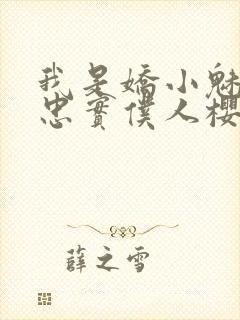 我是嬌小魅
忠實僕人櫻
薛之雪